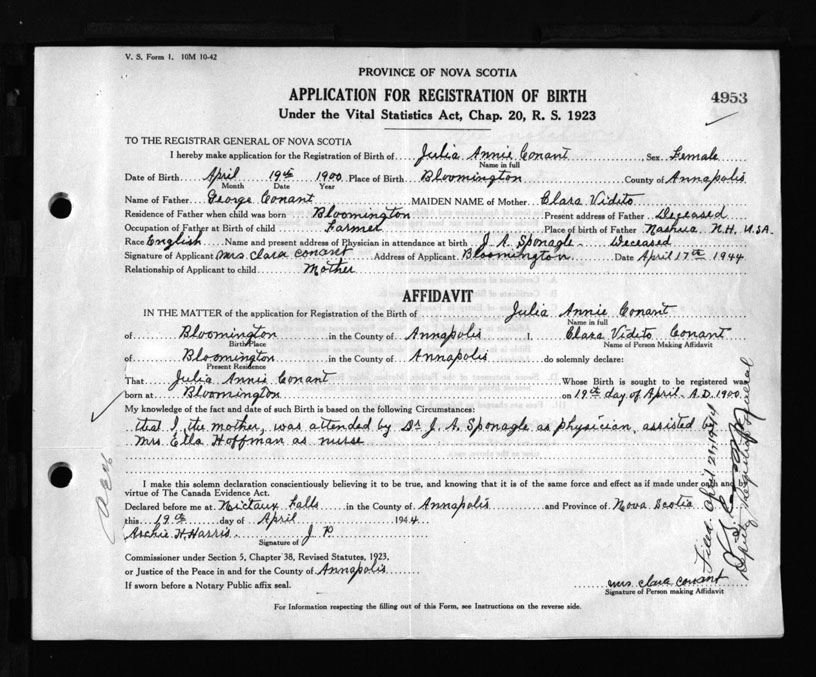 V. S. Form 1. 10M 10-42
PROVINCE OF NOVA SCOTIA
APPLICATION FOR REGISTRATION OF BIRTH
4953
Under the Vital Statistics Act, Chap. 20, R. S. 1923
TO THE REGISTRAR GENERAL OF NOVA SCOTIA
I hereby make application for the Registration of Birth of Julia Annie Conant Sex Female
Name in full
Date of Birth April 19th 1900 Place of Birth Bloomington County of Annapolis
Month Date Year
Name of Father George Conant MAIDEN NAME of Mother Clara Vidito
Residence of Father when child was born Bloomington Present address of Father Deceased
Occupation of Father at Birth of child Farmer Place of birth of Father Nashua N.H. U.S.A.
Race English Name and present address of Physician in attendance at birth J. A. Sponagle - Deceased
Signature of Applicant Mrs. Clara Conant Address of Applicant Bloomington Date April 17th 1944
Relationship of Applicant to child Mother
AFFIDAVIT
IN THE MATTER of the application for Registration of the Birth of Julia Annie Conant
Name in full
of Bloomington in the County of Annapolis I, Clara Vidito Conant
Birth Place Name of Person Making Affidavit
of Bloomington in the County of Annapolis do solemnly declare:
Present Residence
That Julia Annie Conant Whose Birth is sought to be registered was
born at Bloomington on 19th day of April A.D. 1900
My knowledge of the fact and date of such Birth is based on the following Circumstances:
that I, the mother, was attended by Dr J. A. Sponagle as physician, assisted
Mrs. Ella Hoffman as nurse
I make this solemn declaration conscientiously believing it to be true, and knowing that it is of the same force and effect as if made under oath and
virtue of The Canada Evidence Act.
Declared before me at Nictaux Falls in the County of Annapolis and Province of Nova Scotia
this 19th day of April 1944
Archie H Harris J P
Signature of
Commissioner under Section 5, Chapter 38, Revised Statutes, 1923.
or Justice of the Peace in and for the County of Annapolis
If sworn before a Notary Public affix seal.
Mrs. Clara Conant
Signature of Person making Affidavit
For Information respecting the filling out of this Form, see Instructions on the reverse side.
Filed April 1944
Deputy Registrar General